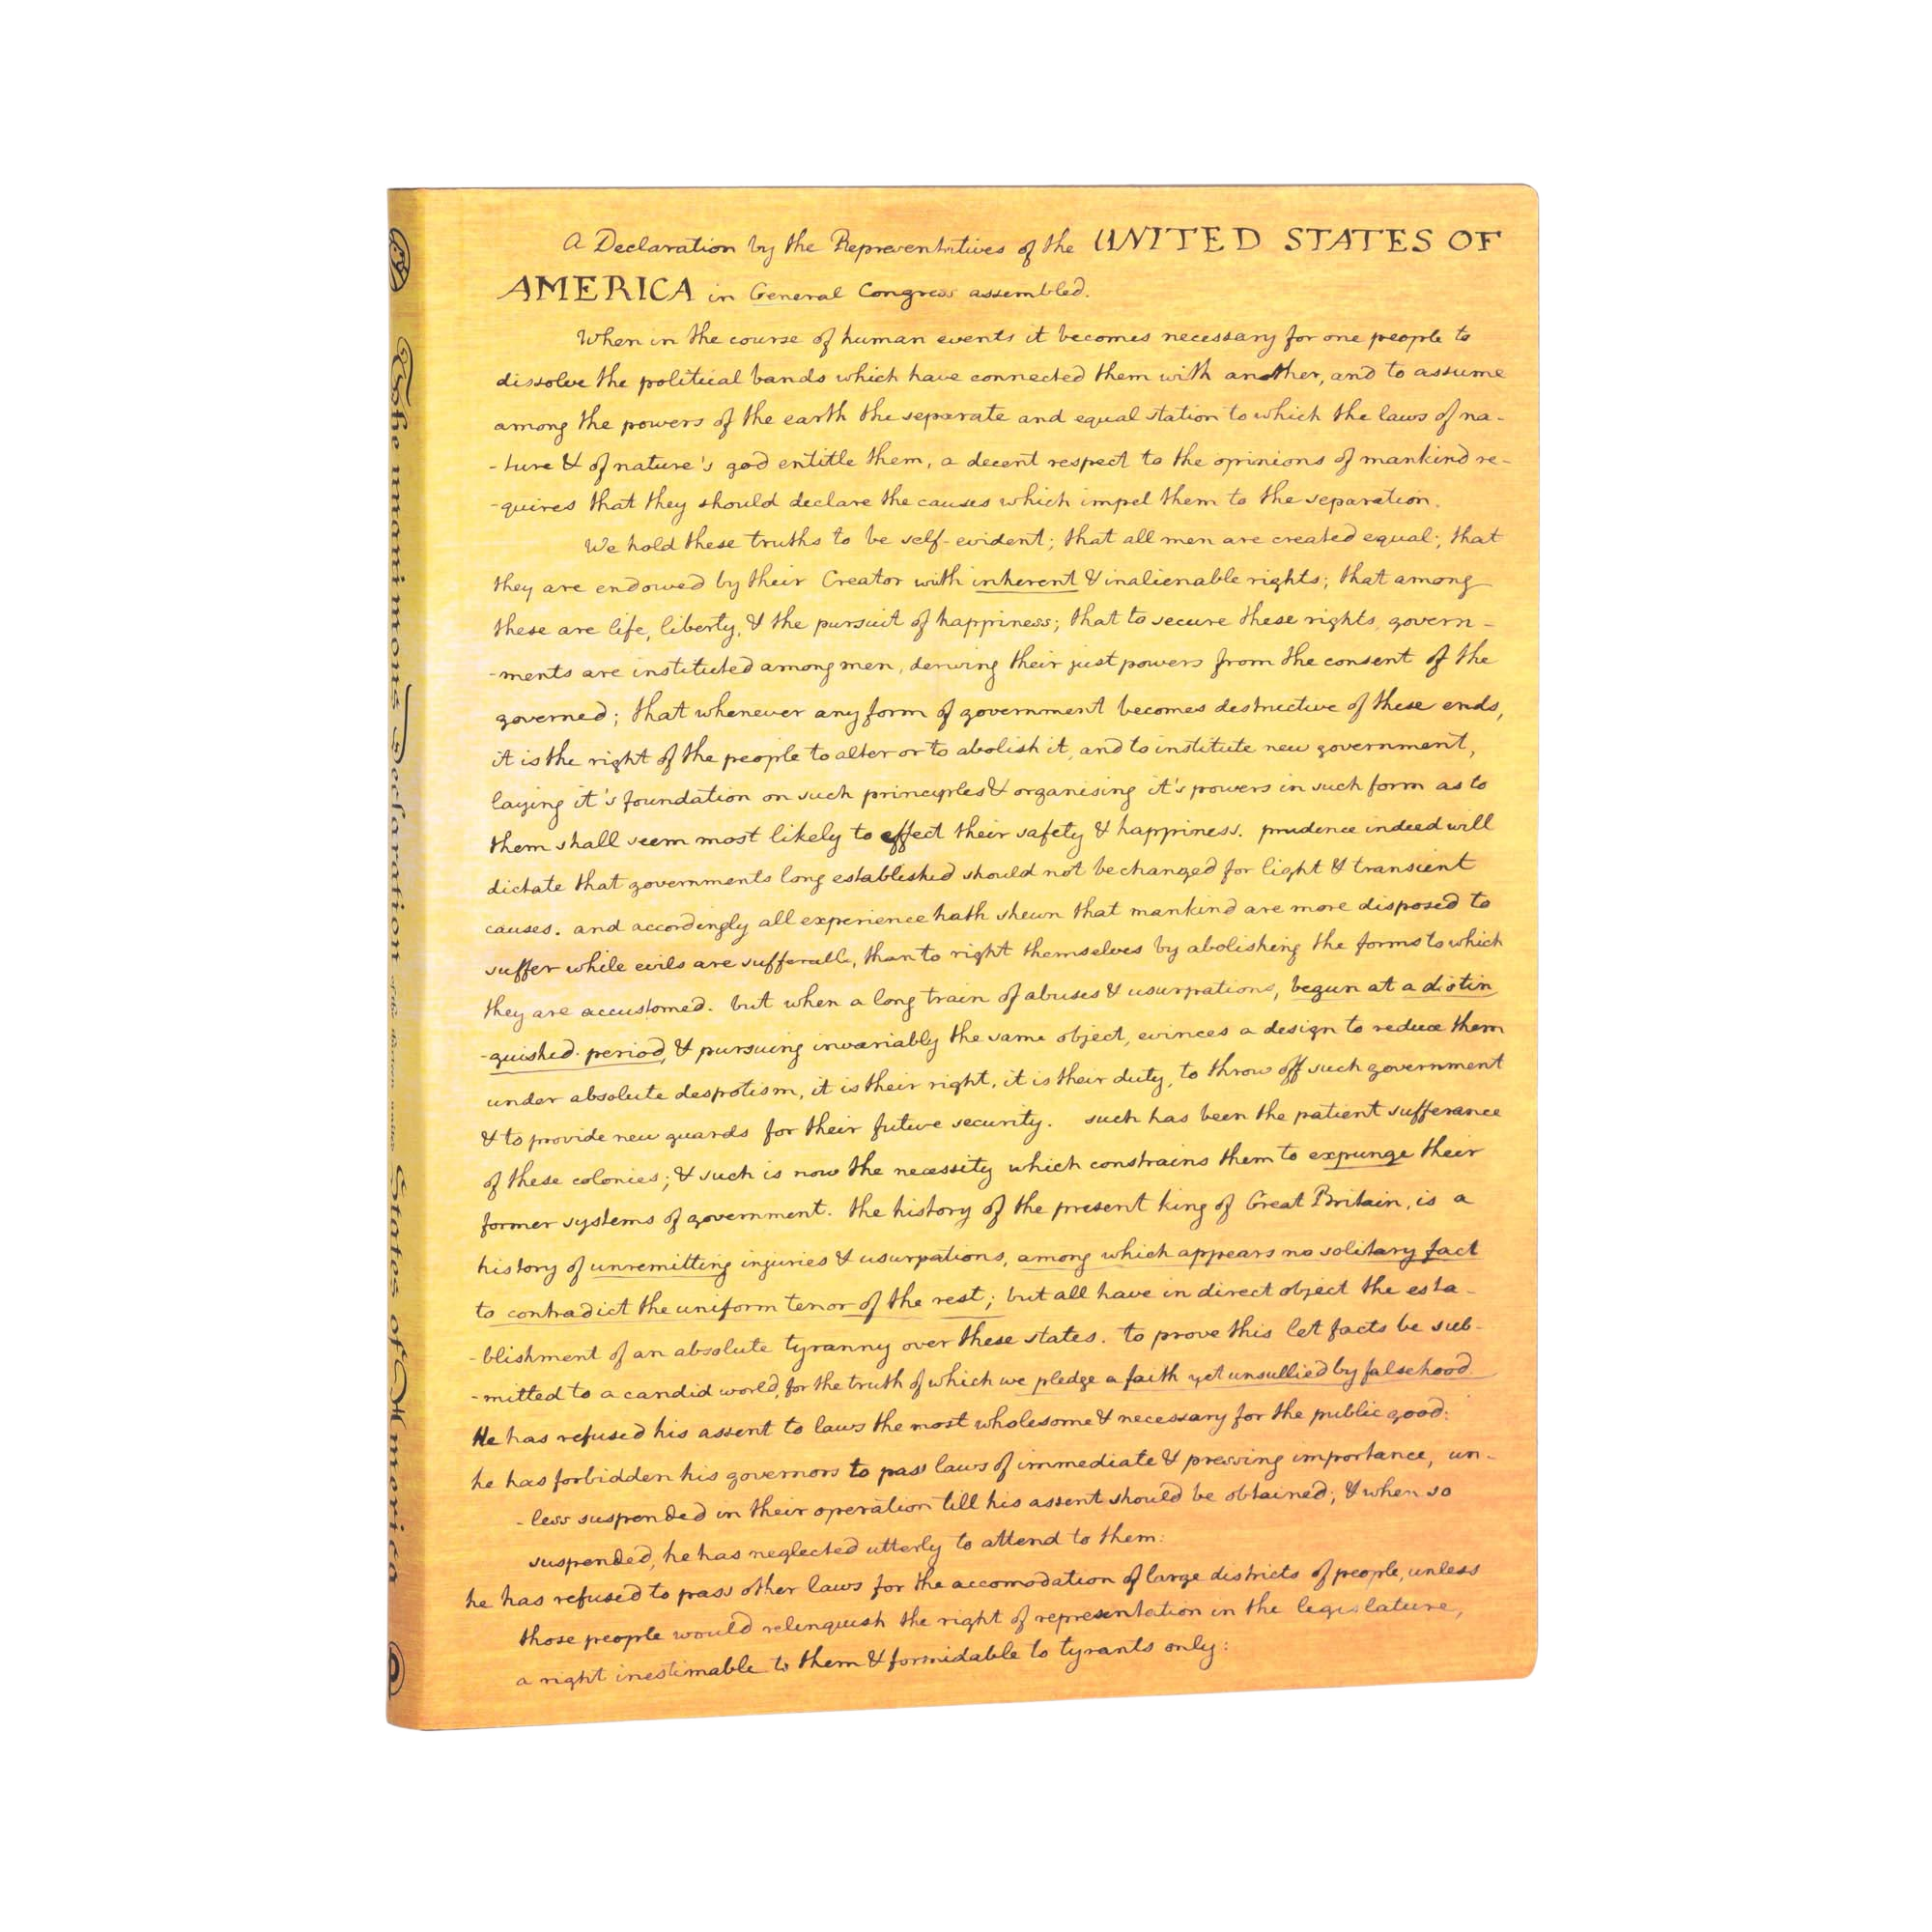 A Declaration by the Representatives of the UNITED STATES OF
AMERICA in General Congress assembled.
When in the course of human events it becomes necessary for one people to
dissolve the political bands which have connected them with another, and to assume
among the powers of the earth the separate and equal station to which the laws of na-
-ture & of nature's god entitle them, a decent respect to the opinions of mankind re-
-quires that they should declare the causes which impel them to the separation.
We hold these truths to be self-evident; that all men are created equal; that
they are endowed by their Creator with inherent & inalienable rights; that among
these are life, liberty, & the pursuit of happiness; that to secure these rights, govern-
-ments are instituted among men, deriving their just powers from the consent of the
governed; that whenever any form of government becomes destructive of these ends,
it is the right of the people to alter or to abolish it, and to institute new government,
laying it's foundation on such principles & organising it's powers in such form as to
them shall seem most likely to effect their safety & happiness. prudence indeed will
dictate that governments long established should not be changed for light & transient
causes. and accordingly all experience hath shewn that mankind are more disposed to
suffer while evils are sufferable, than to right themselves by abolishing the forms to which
they are accustomed. but when a long train of abuses & usurpations, begun at a distin
-guished period, & pursuing invariably the same object, evinces a design to reduce them
under absolute despotism, it is their right, it is their duty, to throw off such government
& to provide new guards for their future security. such has been the patient sufferance
of these colonies; & such is now the necessity which constrains them to expunge their
former systems of government. the history of the present king of Great Britain, is a
history of unremitting injuries & usurpations, among which appears no solitary fact
to contradict the uniform tenor of the rest; but all have in direct object the esta-
-blishment of an absolute tyranny over these states. to prove this let facts be sub-
-mitted to a candid world, for the truth of which we pledge a faith yet unsullied by falsehood.
He has refused his assent to laws the most wholesome & necessary for the public good:
he has forbidden his governors to pass laws of immediate & pressing importance, un-
-less suspended in their operation till his assent should be obtained; & when so
suspended, he has neglected utterly to attend to them:
he has refused to pass other laws for the accomodation of large districts of people, unless
those people would relinquish the right of representation in the legislature,
a right inestimable to them & formidable to tyrants only:
The unanimous Declaration of the thirteen united States of America